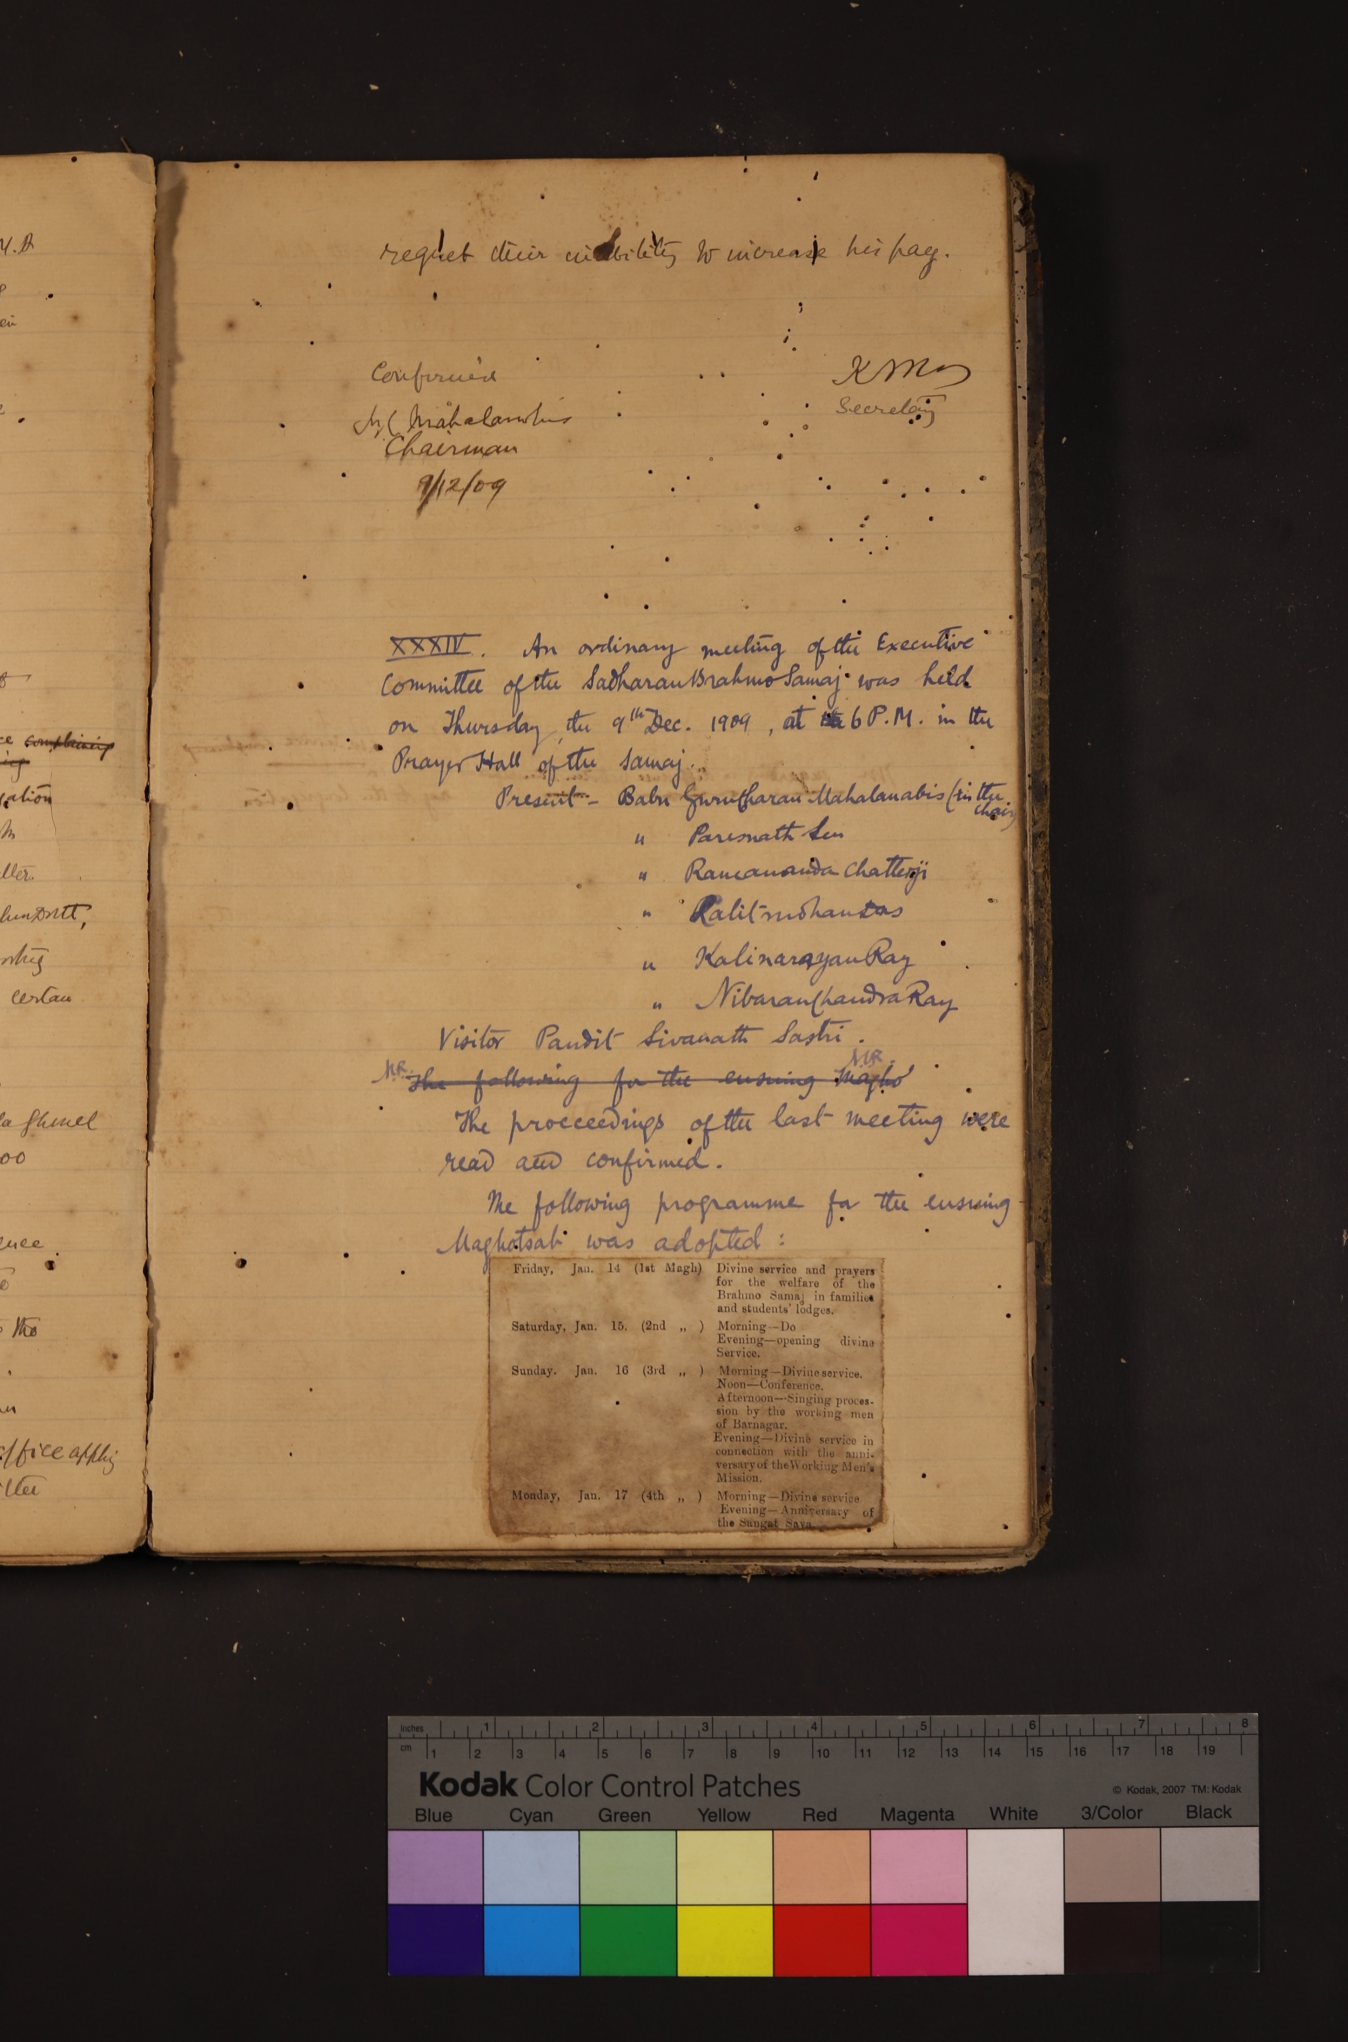 regret their inability to increase his pay.
Confirmed
K M
Secretary
Mahalanobis
Chairman
9/12/09
XXXIV. An ordinary meeting of the Executive
Committee of the Sadharan Brahmo Samaj was held
on Thursday, the 9th Dec. 1909, at 6 P.M. in the
Prayer Hall of the Samaj.
Present - Babu Gurucharan Mahalanabis (in the
chair)
" Paresnath Sen
" Ramananda Chatterji
" Lalitmohan Das
" Kalinarayan Ray
" Nibaran Chandra Ray
Visitor Pandit Sivanath Sastri.
The following for the ensuing Magho
The proceedings of the last meeting were
read and confirmed.
The following programme for the ensuing
Maghotsab was adopted:
Friday, Jan. 14 (1st Magh) Divine service and prayers
for the welfare of the
Brahmo Samaj in families
and students' lodges.
Saturday, Jan. 15. (2nd „ ) Morning—Do
Evening—opening divine
Service.
Sunday. Jan. 16 (3rd „ ) Morning—Divine service.
Noon—Conference.
Afternoon—Singing proces-
sion by the working men
of Barnagar.
Evening—Divine service in
connection with the anni-
versary of the Working Men's
Mission.
Monday, Jan. 17 (4th „ ) Morning—Divine service
Evening—Anniversary of
the Sangat Sava.
complaining
certain
00
office
inches 1 2 3 4 5 6 7 8
cm 1 2 3 4 5 6 7 8 9 10 11 12 13 14 15 16 17 18 19
Kodak Color Control Patches
© Kodak, 2007 TM: Kodak
Blue Cyan Green Yellow Red Magenta White 3/Color Black